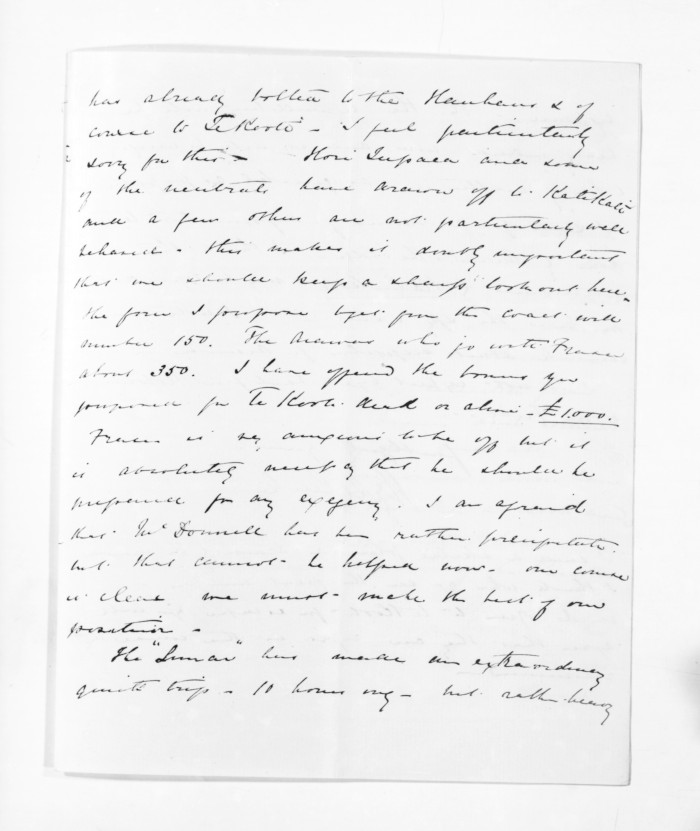 has already bolted to the Hauhaus & of
course to Te Kooti - I feel particularly
sorry for this - Hori Tupaea and some
of the neutrals have drawn off to Kati Kati
and a few others are not particularly well
behaved - this makes it doubly important
that we should keep a sharp look out here -
the force I propose to get from the coast will
number 150. The Arawas who go with Fraser
about 350. I have offered the bonus you
proposed for Te Kooti dead or alive - £1.000.
Fraser is very anxious to be off but it
is absolutely necessary that he should be
prepared for any exigency. I am afraid
that McDonnell has been rather precipitate.
but that cannot be helped now - our course
is clear we must make the best of our
position -
The "Sturt" has made an extraordinary
quick trip - 10 hours only - but rather heavy